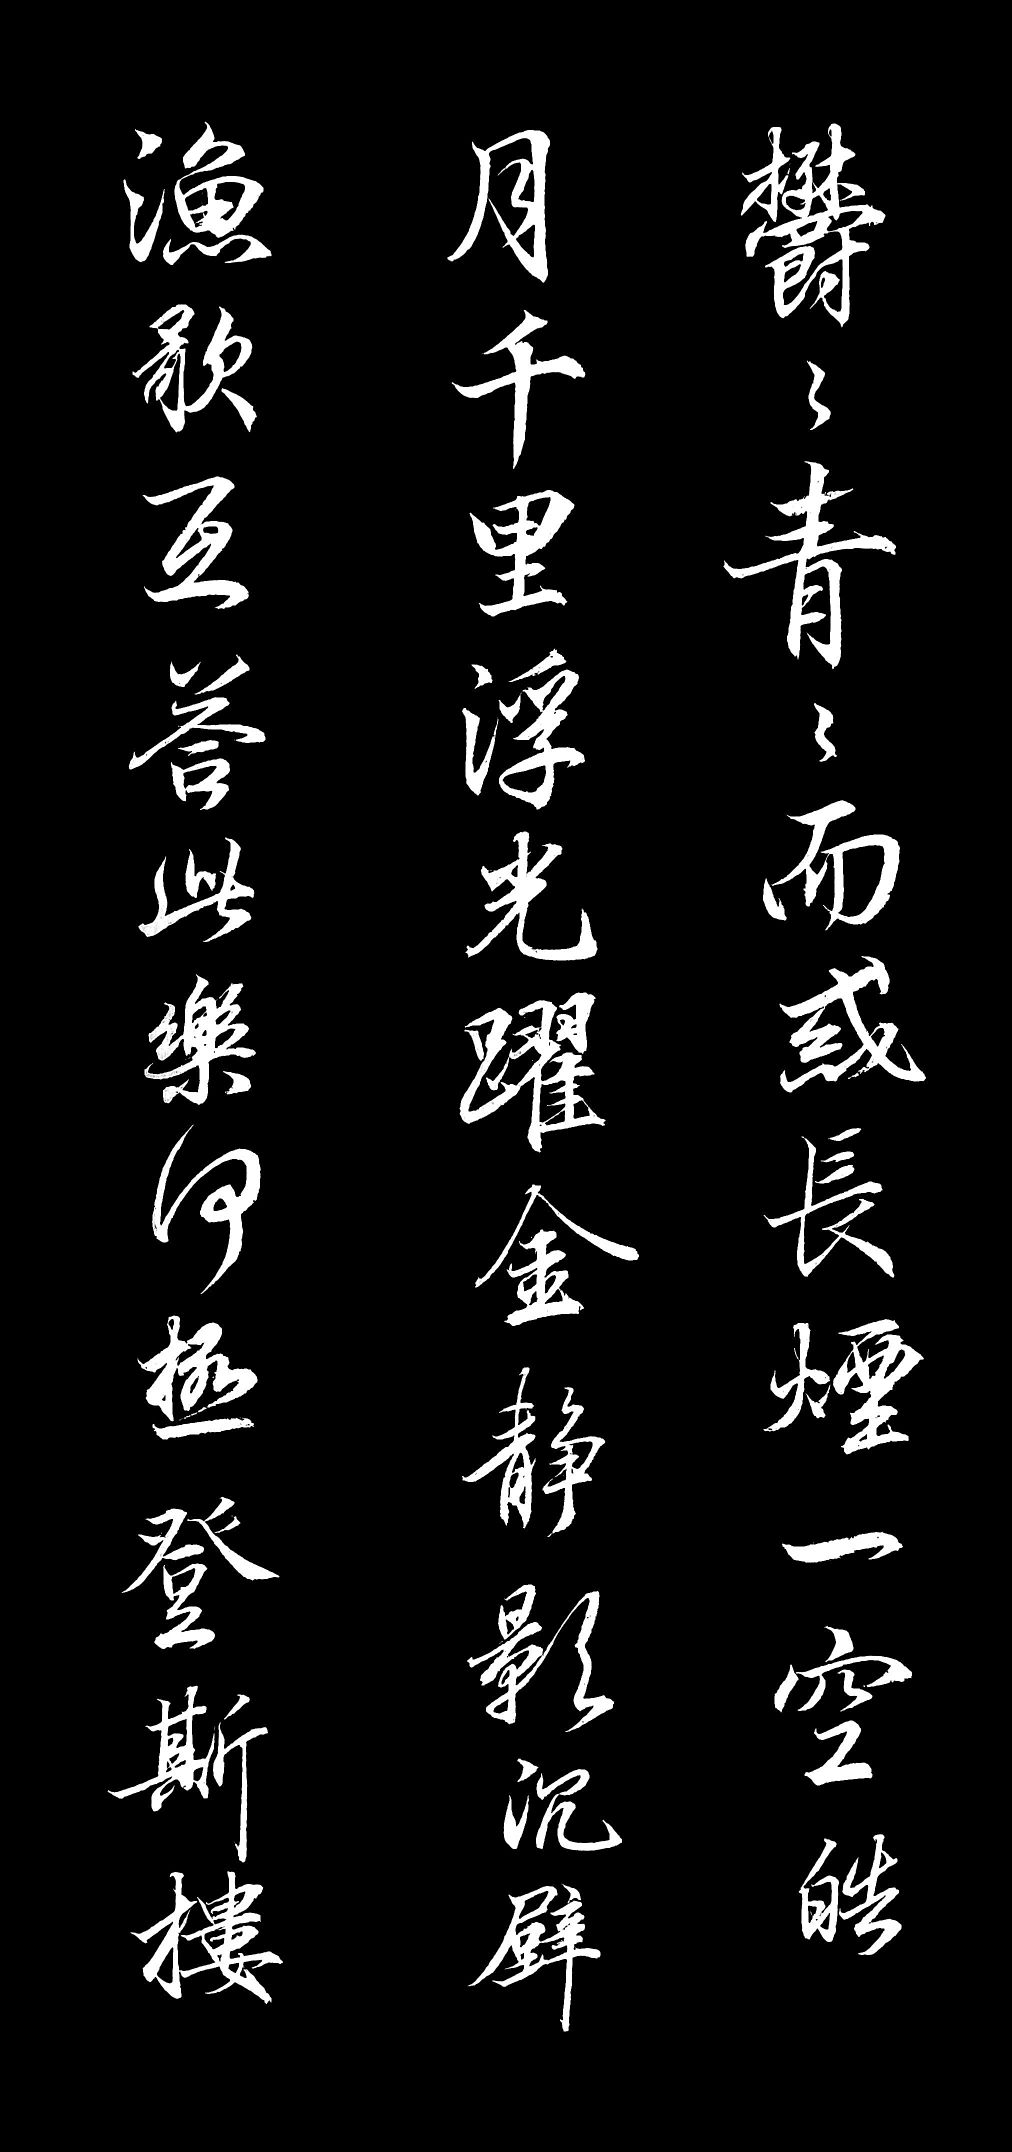 欝々青々而或長煙一空皓
月千里浮光躍金静影沉壁
漁歌互荅此樂何極登斯樓